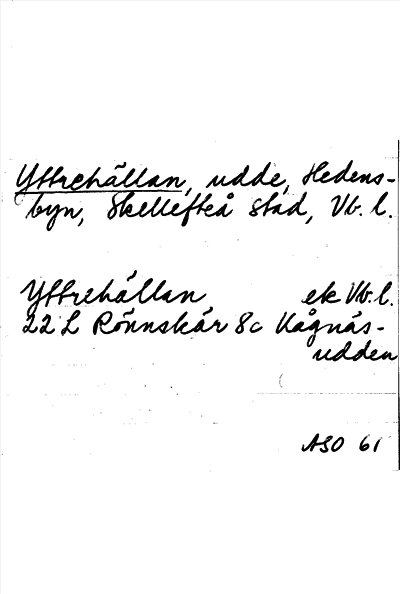 Yttrehällan, udde, Hedens-
byn, Skellefteå stad, Vb. l.
Yttrehällan ek Vb. l.
22 L Rönnskär 8c Kågnäs-
udden
ASO 61